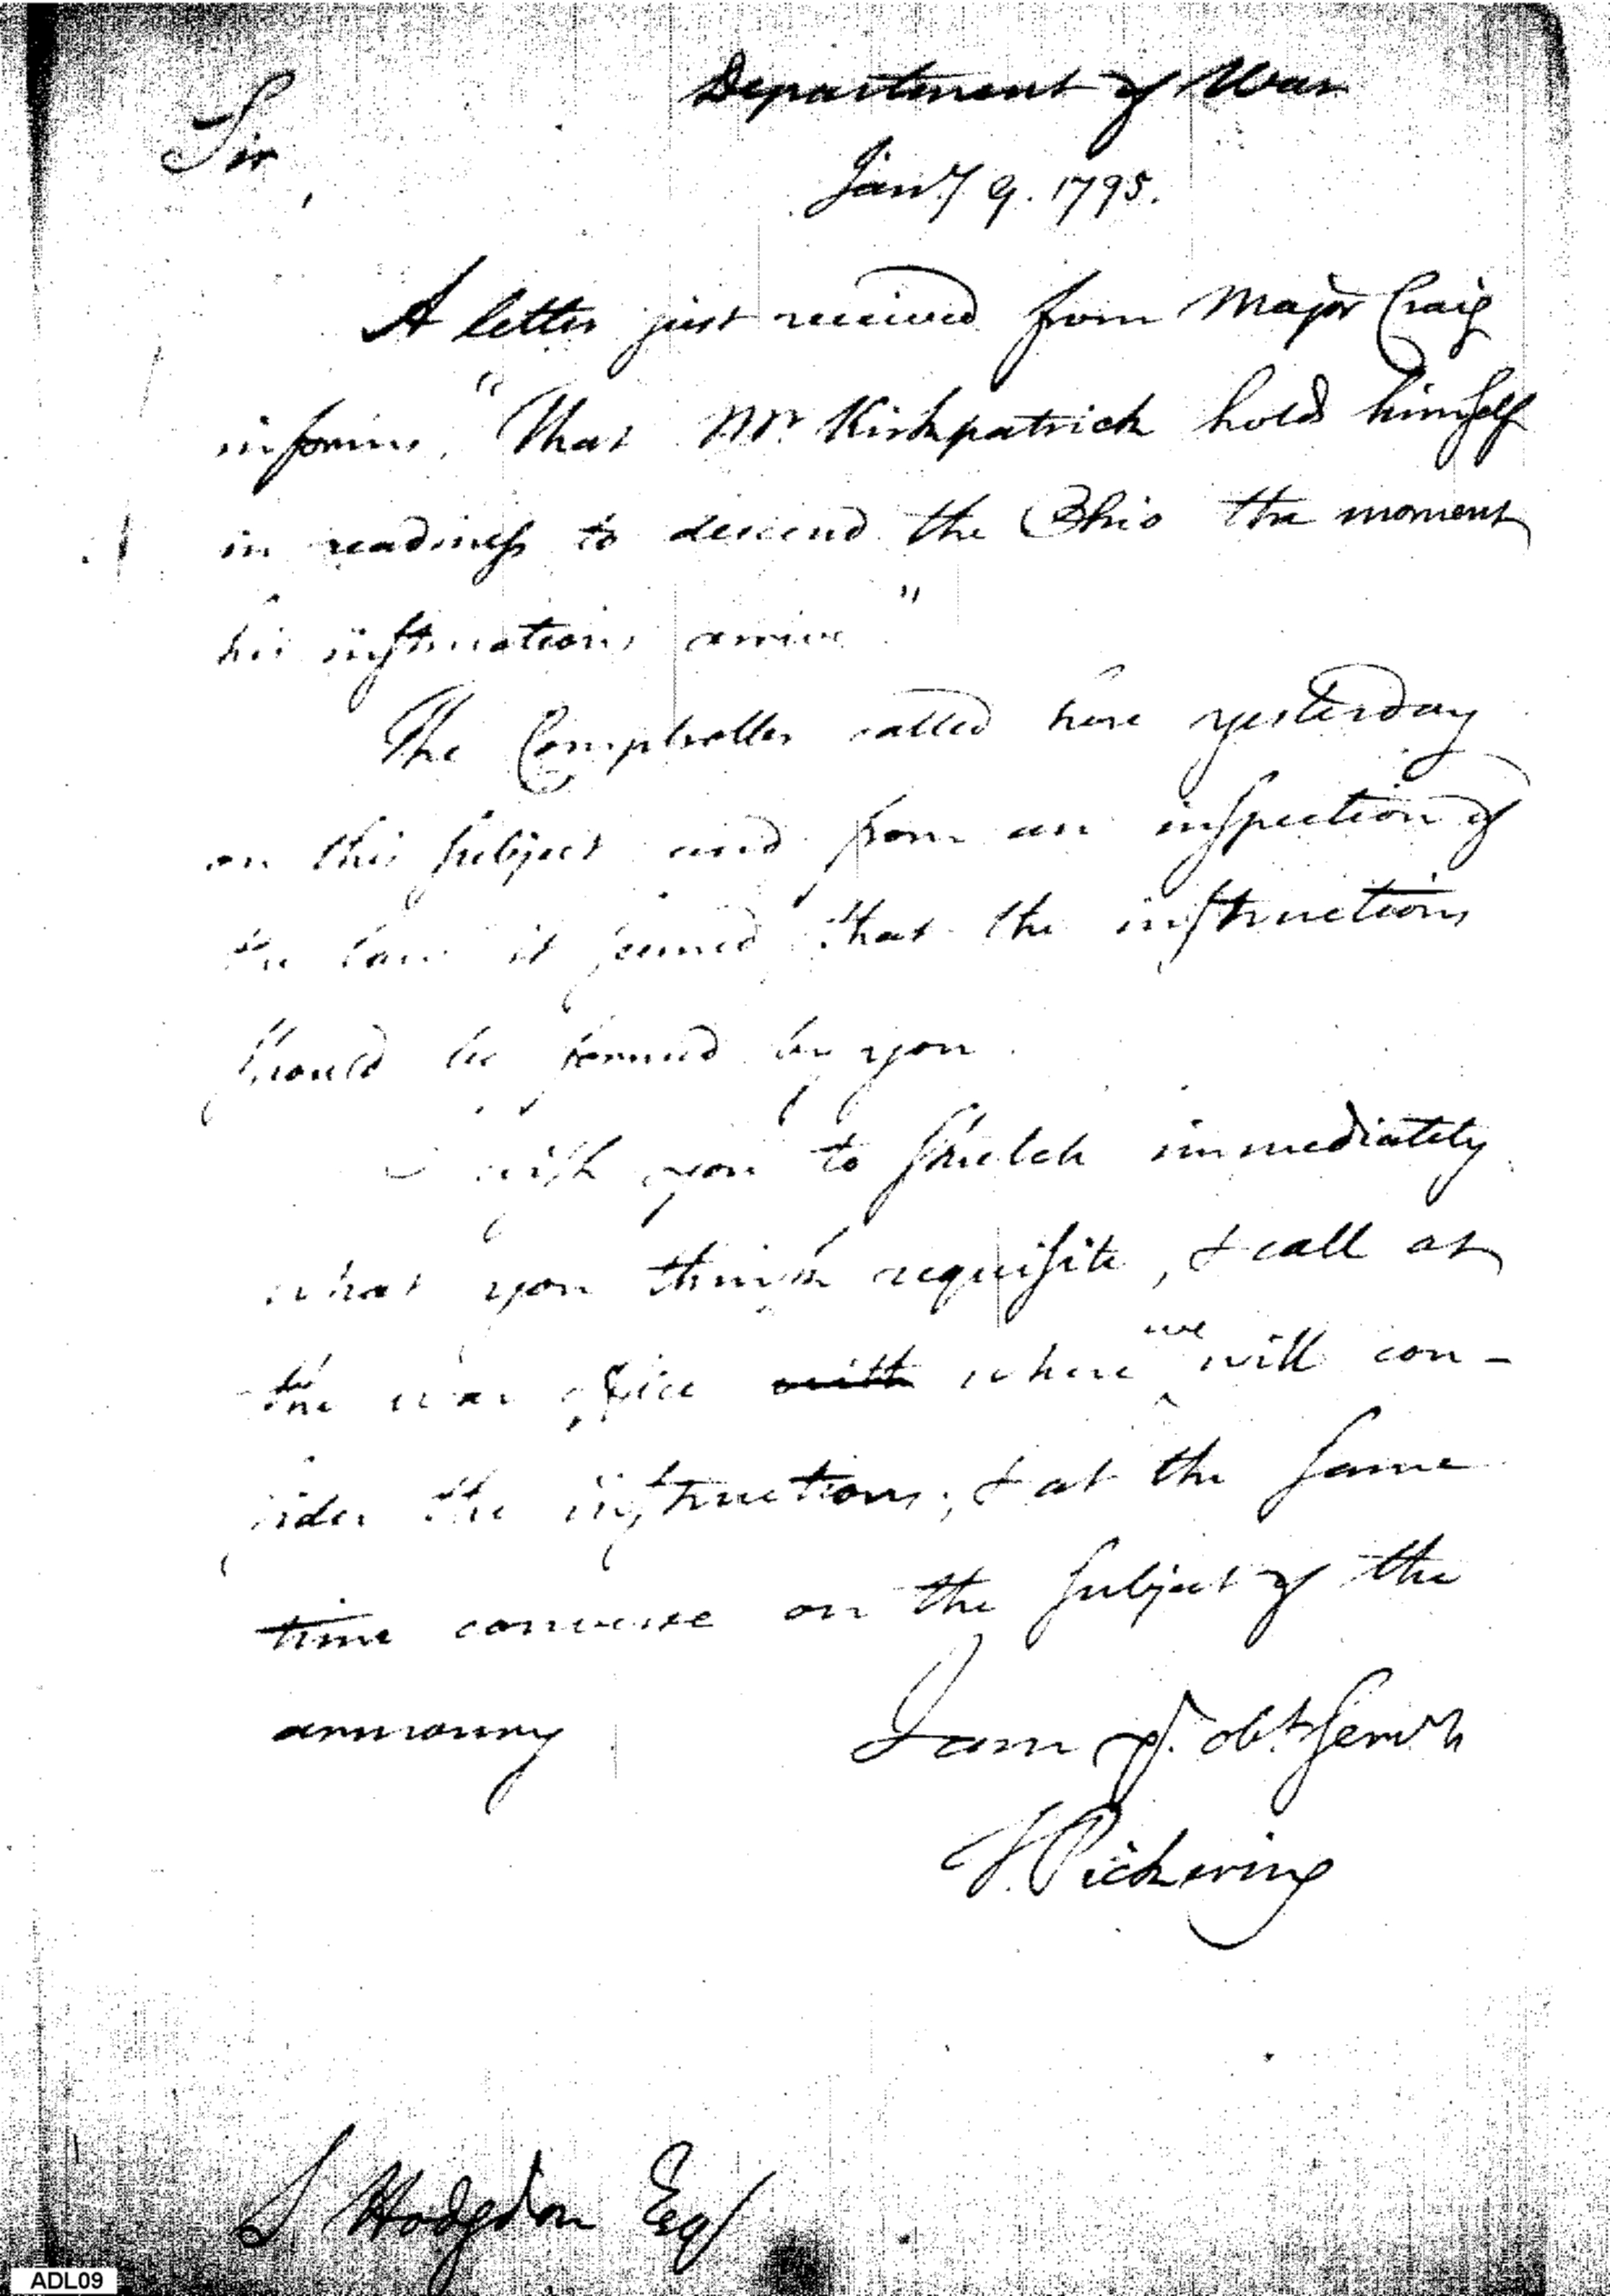 Department of War
Sir,
Jany 9. 1795.
A letter just received from Major Craig
informs, "That Mr Kirkpatrick holds himself
in readiness to descend the Ohio the moment
his instructions arrive"
The Comptroller called here yesterday
on this subject and from an inspection of
the law it seemed that the instructions
should be formed by you.
I wish you to sketch immediately
what you think requisite, & call at
the war office with where we will con-
sider the instructions, & at the same
time converse on the subject of the
armoury
I am yr. obt servt
T. Pickering
S Hodgdon Esqr
ADL09